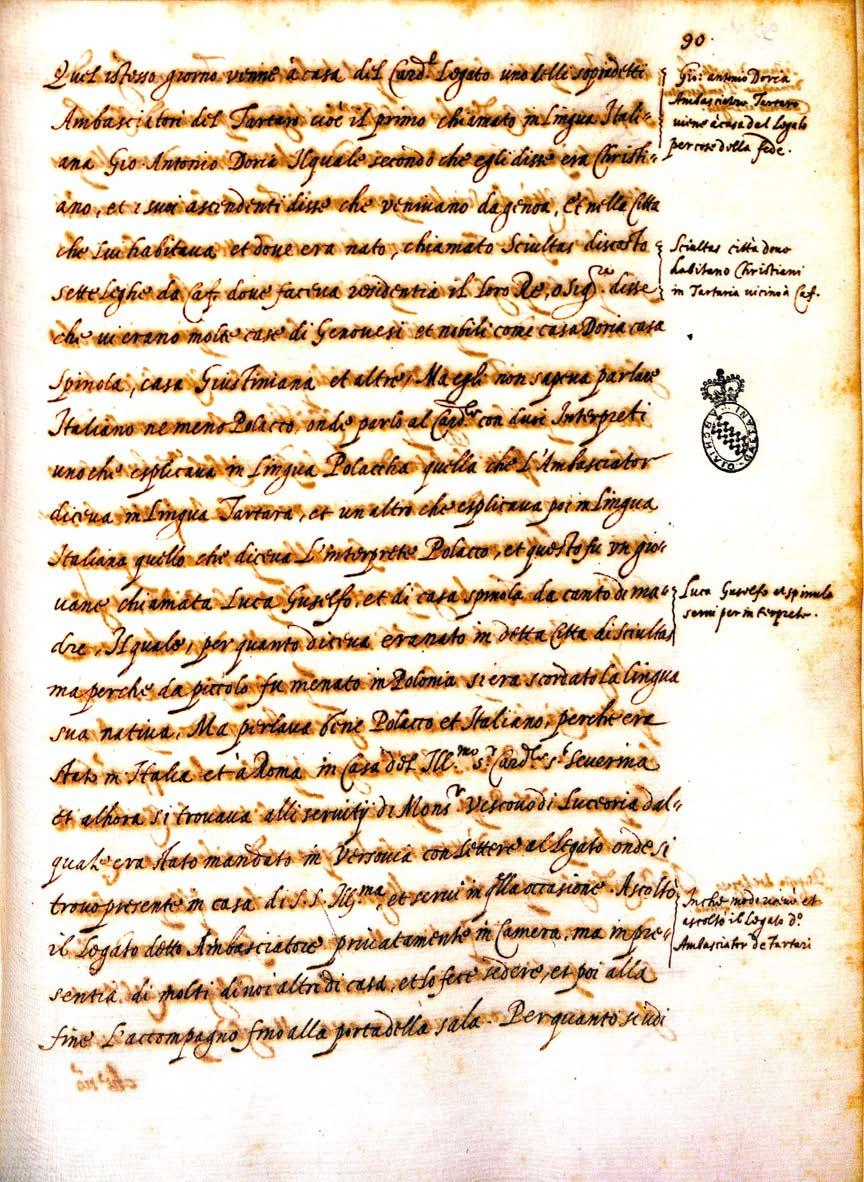 90.
Quel istesso giorno venne à casa del Card.l Legato uno delli sopradetti
Ambasciatori del Tartaro cioè il primo chiamato in Lingua Itali-
ana Gio. Antonio Doria Il quale secondo che egli disse era Christi-
ano, et i suoi ascendenti disse che venivano da genoa, et nella Citta
che lui habitava et dove era nato, chiamato Sciultas discosto
sette leghe da Caf. dove faceva residentia il loro Re, o Sig.re disse
che vi erano molte case di Genovesi et nobili come casa Doria casa
Spinola, casa Giustiniana et altre, Ma egli non sapeva parlare
Italiano ne meno Polacco, onde parlo al Card.le con duoi Interpreti
uno che esplicava in Lingua Polaccha quella che L'Ambasciator
diceva in Lingua Tartara, et un altro che esplicava poi in Lingua
Italiana quello che diceva L'interprete Polacco, et questo fu un gio-
vane chiamata Luca Guselfo, et di casa spinola da canto di ma-
dre, Il quale, per quanto diceva era nato in detta Citta di Sciultas
ma perche da piccolo fu menato in Polonia si era scordato la lingua
sua nativa, Ma perlava bene Polacco et Italiano, perche era
stato in Italia et à Roma in Casa del Ill.mo S.r Card.le S.t Severina
et alhora si trovava alli servitij di Mons.r Vescovo di Luceoria dal-
quale era stato mandato in Versovia con Lettere al Legato onde si
trovo presente in casa di S.S. Ill.ma, et servi in q.lla occasione. Ascoltò
il Legato detto Ambasciatore privatamente in Camera, ma in pre-
sentia di molti di noi altri di casa, et lo fece sedere, et poi alla
fine L'accompagno fino alla porta della sala. Per quanto si udi
Gio: antonio Doria
Ambasciatore Tartaro
viene à casa del Legato
per cose della fede.
Sciultas città dove
habitano Christiani
in Tartaria vicino à Caf.
ARCHIVIO CAETANI
Luca Guselfo et spinula
servi per interprete.
In che modo riceve et
ascoltò il Legato d.o
Ambasciator de tartari